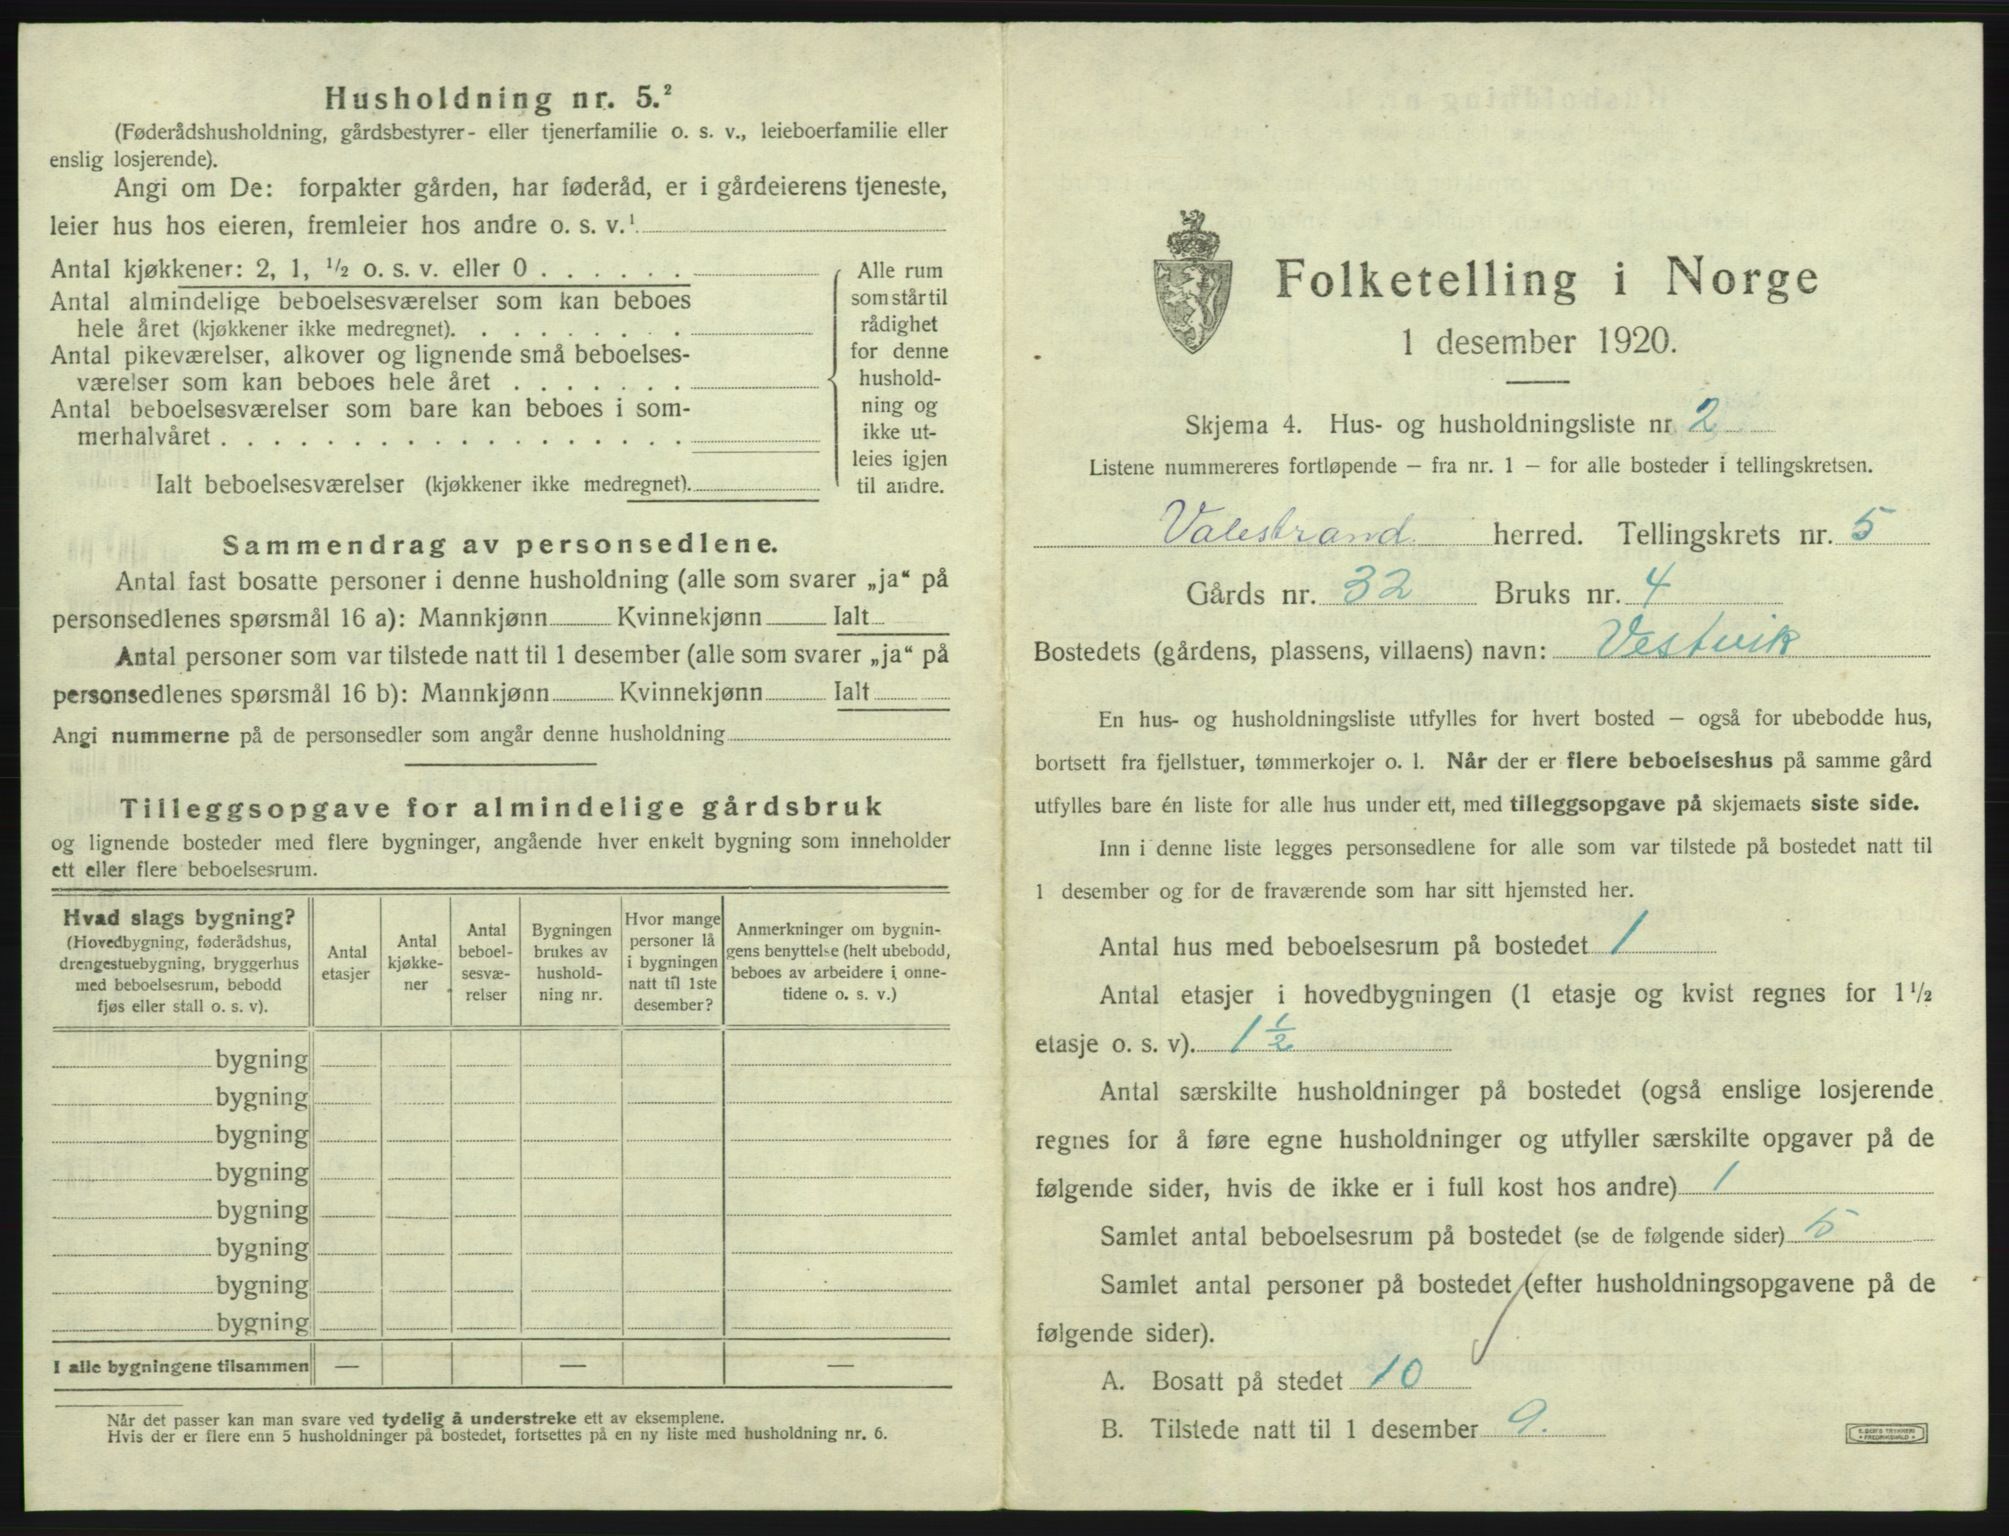 Husholdning nr. 5.²
(Føderådshusholdning, gårdsbestyrer- eller tjenerfamilie o. s. v., leieboerfamilie eller
enslig losjerende).
Angi om De: forpakter gården, har føderåd, er i gårdeierens tjeneste,
leier hus hos eieren, fremleier hos andre o. s. v.¹
Antal kjøkkener: 2, 1, ½ o. s. v. eller 0
Antal almindelige beboelsesværelser som kan beboes
hele året (kjøkkener ikke medregnet).
Antal pikeværelser, alkover og lignende små beboelses-
værelser som kan beboes hele året
Antal beboelsesværelser som bare kan beboes i som-
merhalvåret
Ialt beboelsesværelser (kjøkkener ikke medregnet).
Alle rum
som står til
rådighet
for denne
hushold-
ning og
ikke ut-
leies igjen
til andre.
Sammendrag av personsedlene.
Antal fast bosatte personer i denne husholdning (alle som svarer „ja“ på
personsedlenes spørsmål 16 a): Mannkjønn Kvinnekjønn Ialt
Antal personer som var tilstede natt til 1 desember (alle som svarer „ja“ på
personsedlenes spørsmål 16 b): Mannkjønn Kvinnekjønn Ialt
Angi nummerne på de personsedler som angår denne husholdning
Tilleggsopgave for almindelige gårdsbruk
og lignende bosteder med flere bygninger, angående hver enkelt bygning som inneholder
ett eller flere beboelsesrum.
Hvad slags bygning?
(Hovedbygning, føderådshus,
drengestuebygning, bryggerhus
med beboelsesrum, bebodd
fjøs eller stall o. s. v).
Antal
etasjer
Antal
kjøkke-
ner
Antal
beboel-
sesvæ-
relser
Bygningen
brukes av
hushold-
ning nr.
Hvor mange
personer lå
i bygningen
natt til 1ste
desember?
Anmerkninger om bygnin-
gens benyttelse (helt ubebodd,
beboes av arbeidere i onne-
tidene o. s. v.)
bygning
bygning
bygning
bygning
bygning
bygning
bygning
bygning
I alle bygningene tilsammen — — —
Når det passer kan man svare ved tydelig å understreke ett av eksemplene.
Hvis der er flere enn 5 husholdninger på bostedet, fortsettes på en ny liste med husholdning nr. 6.
Folketelling i Norge
1 desember 1920.
Skjema 4. Hus- og husholdningsliste nr 2
Listene nummereres fortløpende – fra nr. 1 – for alle bosteder i tellingskretsen.
Valestrand herred. Tellingskrets nr. 5
Gårds nr. 32 Bruks nr. 4
Bostedets (gårdens, plassens, villaens) navn: Vestvik
En hus- og husholdningsliste utfylles for hvert bosted – også for ubebodde hus,
bortsett fra fjellstuer, tømmerkojer o. l. Når der er flere beboelseshus på samme gård
utfylles bare én liste for alle hus under ett, med tilleggsopgave på skjemaets siste side.
Inn i denne liste legges personsedlene for alle som var tilstede på bostedet natt til
1 desember og for de fraværende som har sitt hjemsted her.
Antal hus med beboelsesrum på bostedet 1
Antal etasjer i hovedbygningen (1 etasje og kvist regnes for 1½
etasje o. s. v). 1½
Antal særskilte husholdninger på bostedet (også enslige losjerende
regnes for å føre egne husholdninger og utfyller særskilte opgaver på de
følgende sider, hvis de ikke er i full kost hos andre) 1
Samlet antal beboelsesrum på bostedet (se de følgende sider) 5
Samlet antal personer på bostedet (efter husholdningsopgavene på de
følgende sider).
A. Bosatt på stedet 10
B. Tilstede natt til 1 desember 9.